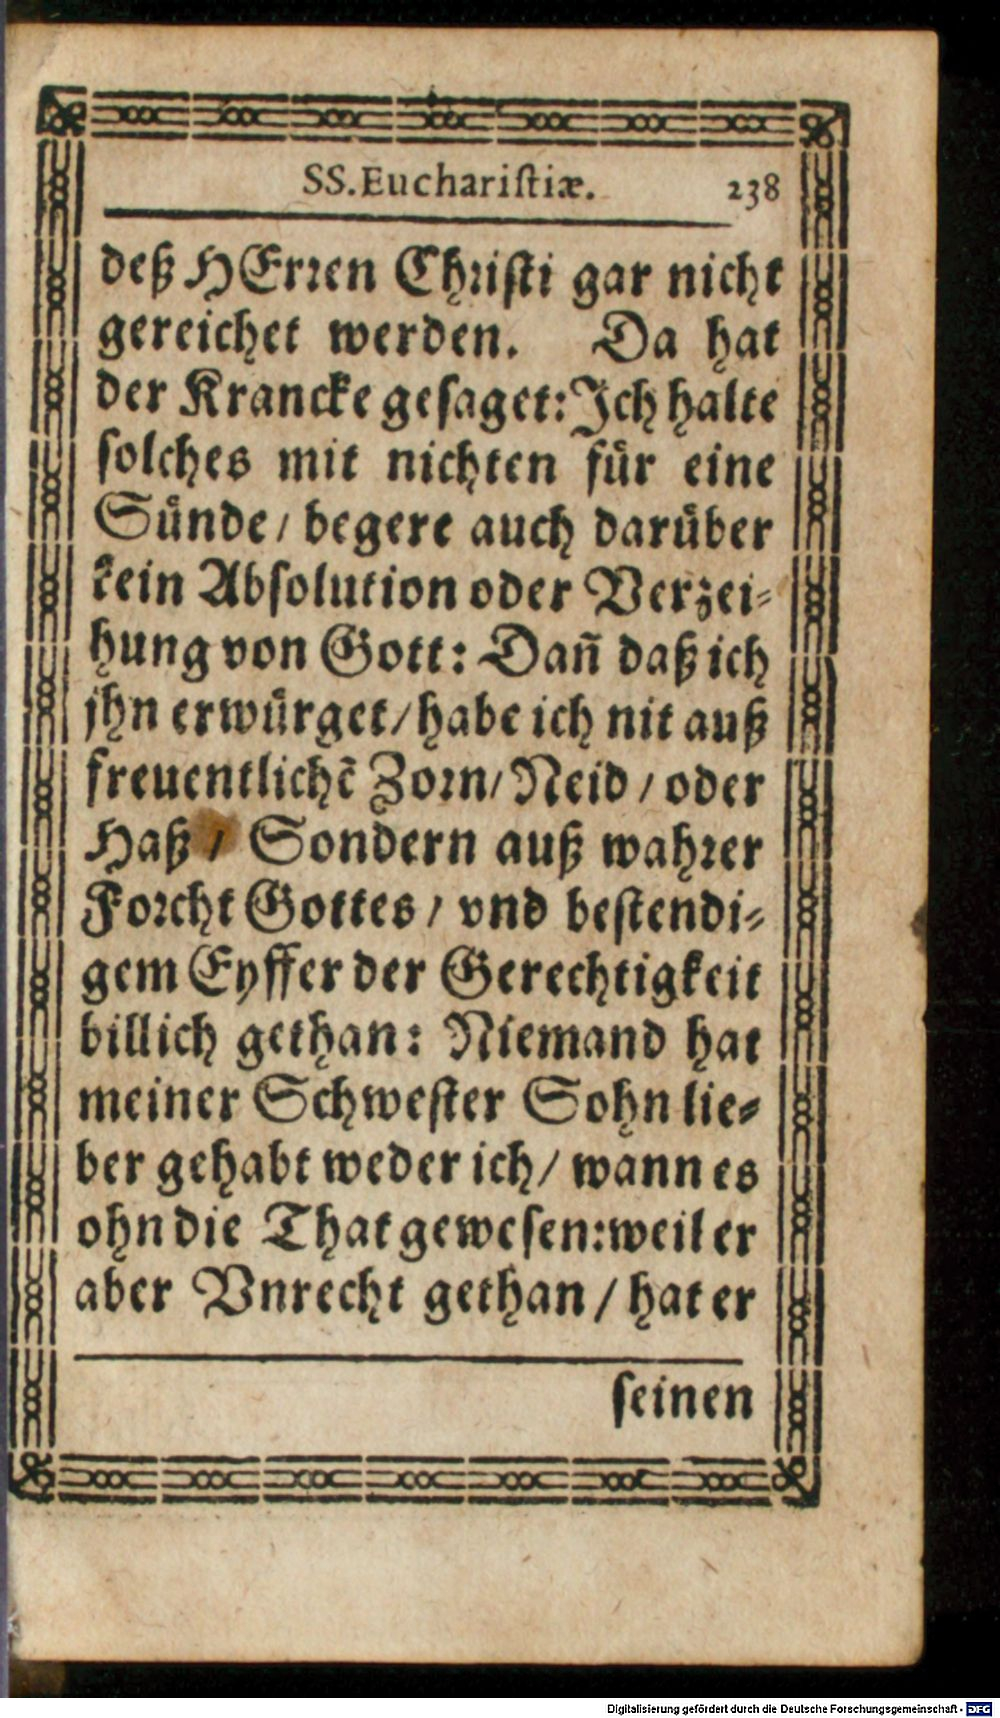 SS. Euchariſtiæ. 238
deß HErren Chriſti gar nicht
gereichet werden. Da hat
der Krancke geſaget: Jch halte
ſolches mit nichten fuͤr eine
Suͤnde / begere auch daruͤber
kein Abſolution oder Verzei⸗
hung von Gott: Dañ daß ich
jhn erwuͤrget / habe ich nit auß
freuentlichẽ Zorn / Neid / oder
Haß / Sondern auß wahrer
Forcht Gottes / vnd beſtendi⸗
gem Eyffer der Gerechtigkeit
billich gethan: Niemand hat
meiner Schweſter Sohn lie⸗
ber gehabt weder ich / wann es
ohn die That geweſen: weil er
aber Vnrecht gethan / hat er
ſeinen
Digitalisierung gefördert durch die Deutsche Forschungsgemeinschaft - DFG